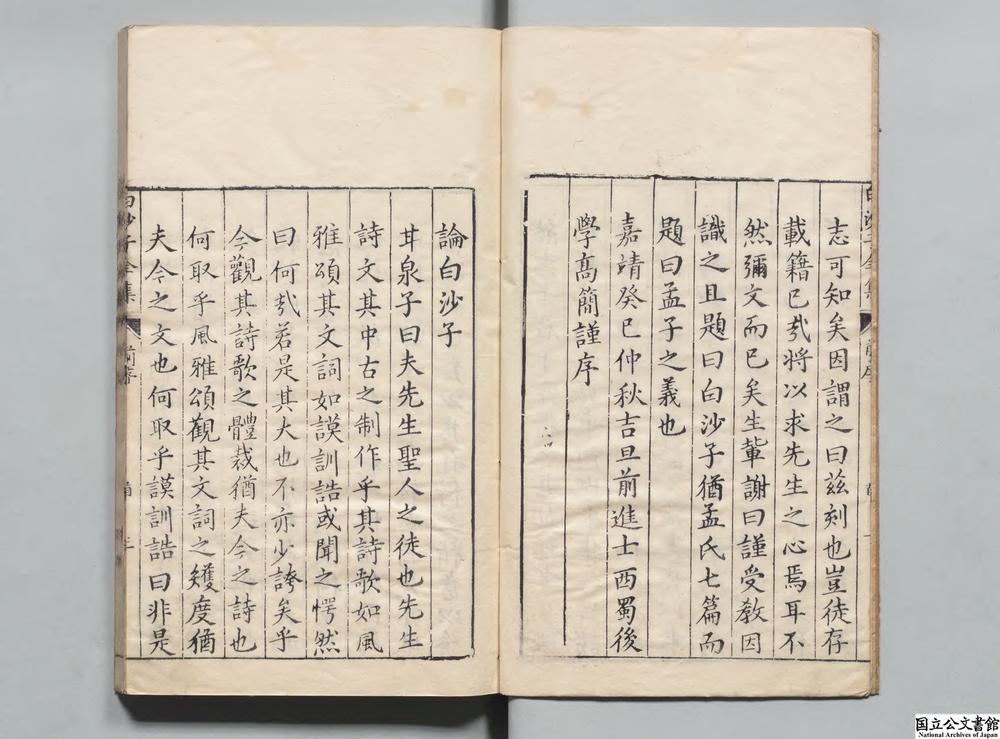 志可知矣因謂之曰茲刻也豈徒存
載籍已㢤將以求先生之心焉耳不
然彌文而已矣生軰謝曰謹受敎因
識之且題曰白沙子猶孟氏七篇而
題曰孟子之義也
嘉靖癸巳仲秋吉旦前進士西蜀後
學髙簡謹序
論白沙子
甘泉子曰夫先生聖人之徒也先生
詩文其中古之制作乎其詩歌如風
雅頌其文詞如謨訓誥或聞之愕然
曰何㢤若是其大也不亦少誇矣乎
今觀其詩歌之體裁猶夫今之詩也
何取乎風雅頌觀其文詞之矱度猶
夫今之文也何取乎謨訓誥曰非是
白沙子全集
前序
国立公文書館
National Archives of Japan